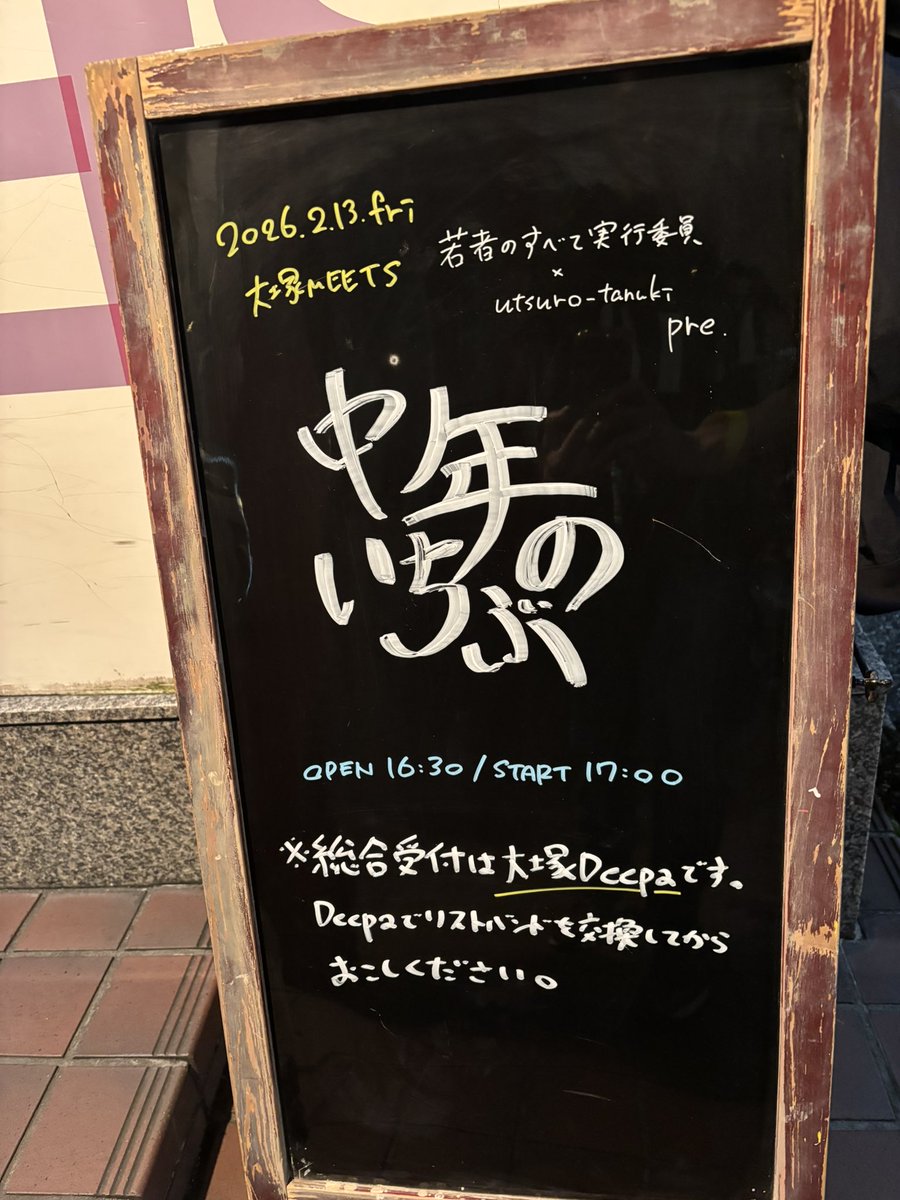 2026.2.13.fri
大塚MEETS
若者のすべて実行委員
×
utsuro-tanuki
pre.
中年の
いちぶ
OPEN 16:30 / START 17:00
※総合受付は大塚Deepaです。
Deepaでリストバンドを交換してから
おこしください。